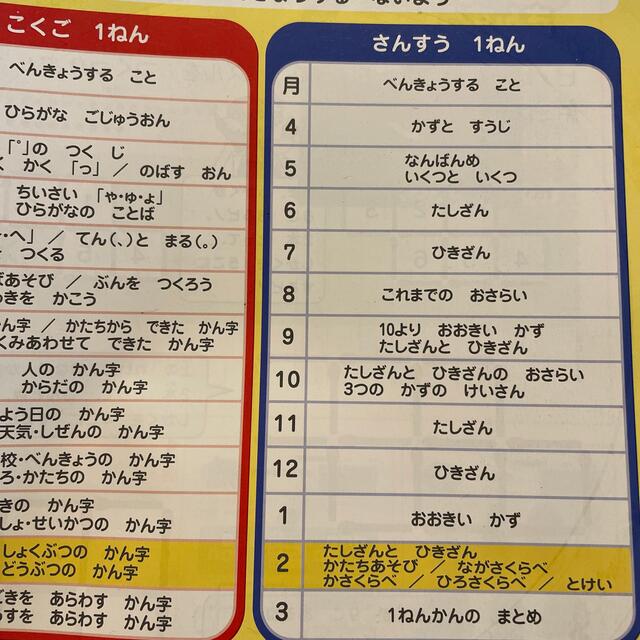 こくご 1ねん
べんきょうする こと
ひらがな ごじゅうおん
「゜」の つく じ
かく 「っ」 / のばす おん
ちいさい 「や・ゆ・ょ」
ひらがなの ことば
・へ」 / てん(、)と まる(。)
つくる
あそび / ぶんを つくろう
きを かこう
ん字 / かたちから できた かん字
くみあわせて できた かん字
人の かん字
からだの かん字
よう日の かん字
天気・しぜんの かん字
校・べんきょうの かん字
ろ・かたちの かん字
きの かん字
しょ・せいかつの かん字
しょくぶつの かん字
どうぶつの かん字
ごきを あらわす かん字
すを あらわす かん字
さんすう 1ねん
月 べんきょうする こと
4 かずと すうじ
5 なんばんめ
いくつと いくつ
6 たしざん
7 ひきざん
8 これまでの おさらい
9 10より おおきい かず
たしざんと ひきざん
10 たしざんと ひきざんの おさらい
3つの かずの けいさん
11 たしざん
12 ひきざん
1 おおきい かず
2 たしざんと ひきざん
かたちあそび / ながさくらべ
かさくらべ / ひろさくらべ / とけい
3 1ねんかんの まとめ